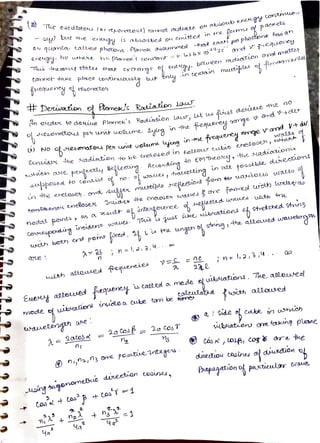 (2) The oscillators (or resonators) cannot radiate or absorb energy continuou-
-sly! but the energy is absorbed or emitted in the forms of packets
or quanta called photons. Planck assumed that each photon has an
energy hν where h is Planck's constant = 6.63 × 10⁻³⁴ Js and ν frequency
This means states that exchange of energy between radiation and matter
cannot take place continuously but only in certain multiples of fundamental
frequency of resonator
# Derivation of Planck's Radiation Law
In order to derive Planck's Radiation Law, let us first derive the no
of resonators per unit volume lying in the frequency range ν and ν+dν
(1) No of resonators per unit volume lying in the frequency range ν and ν+dν
Consider the radiation to be enclosed in hollow cubic enclosure, walls of
which are perfectly reflecting. According to EM theory, the radiation is
supposed to consist of no. of waves, travelling in all possible directions
in the enclosure and suffer multiple reflections from the various walls of
enclosure. Inside the enclosure waves are formed with
nodal points, as a result of interference of reflected waves with the
corresponding incident waves. This is just like vibrations of stretched string
with both end point fixed. If L is the length of string, the allowed wavelengths
are : λ = 2L/n ; n = 1,2,3,4... ∞
with allowed frequencies ν = c/λ = nc/2L ; n = 1,2,3,4.. ∞
Every allowed frequency is called a mode of vibrations. The allowed
mode of vibrations inside a cube can be calculated with allowed
wavelength are :
λ = 2a cosα/n₁ = 2a cosβ/n₂ = 2a cosγ/n₃
a : side of cube in which
vibrations are taking place
n₁, n₂, n₃ are positive integers.
cosα, cosβ, cosγ are the
direction cosines of direction of
propagation of particular wave
using trigonometric direction cosines,
cos²α + cos²β + cos²γ = 1
n₁²λ²/4a² + n₂²λ²/4a² + n₃²λ²/4a² = 1